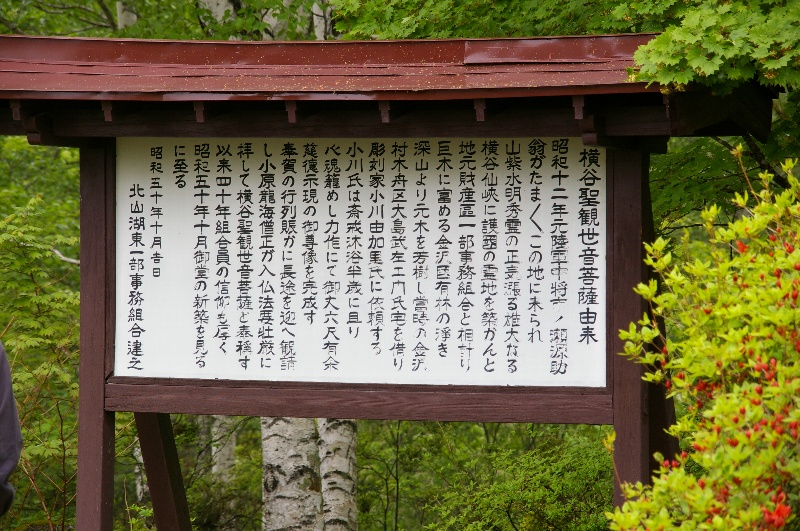 横谷聖観世音菩薩由来
昭和十二年元陸軍中将一ノ瀬源助
翁がたまくこの地に来られ
山紫水明秀霊の正意漲る雄大なる
横谷仙峡に護国の霊地を築かんと
地元財産區一部事務組合と相計り
巨木に富める金沢區有林の浄き
深山より元木を芳樹し當時の金沢
村木舟区大島武左エ門氏宅を借り
彫刻家小川由加里氏に依頼する
小川氏は斎戒沐浴半歳に亘り
心魂籠めし力作にて御丈六尺有余
慈徳示現の御尊像を完成す
奉賀の行列賑かに長途を迎へ観請
し小原龍海僧正が入仏法要壮厳に
拝して横谷聖観世音菩薩と奉稱す
以来四十年組合員の信仰も厚く
昭和五十年十月御堂の新築を見る
に至る
昭和五十年十月吉日
北山湖東一部事務組合建之